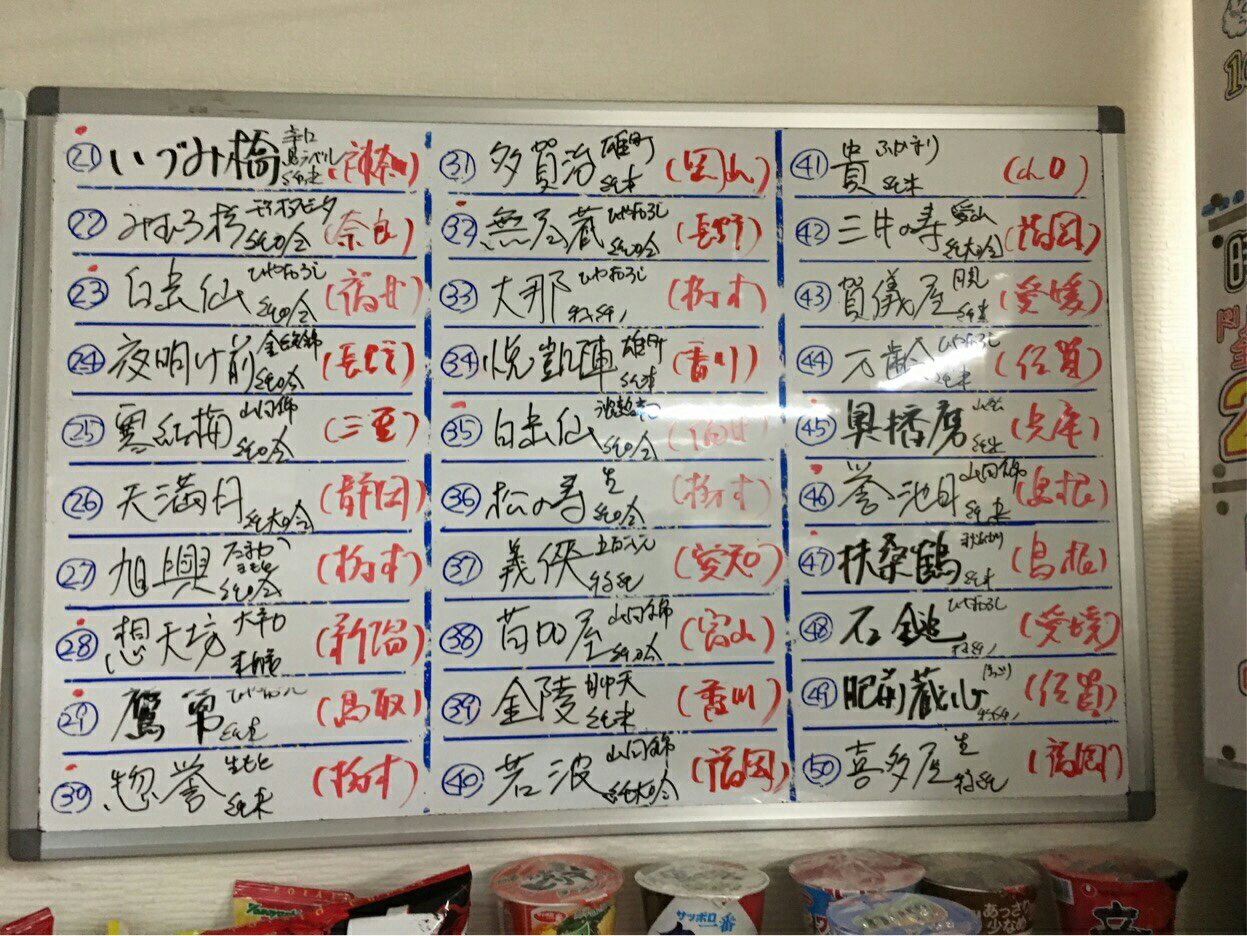 ㉑ いづみ橋 辛口 黒ラベル 純米 (神奈川)
㉒ みむろ杉 純吟 (奈良)
㉓ 白岳仙 ひやおろし 純吟 (福井)
㉔ 夜明け前 金紋錦 純吟 (長野)
㉕ 寒紅梅 山田錦 純吟 (三重)
㉖ 天満月 純大吟 (静岡)
㉗ 旭興 たまか 純吟 (栃木)
㉘ 想天坊 大辛口 (新潟)
㉙ 鷹勇 ひやおろし 純米 (鳥取)
㉚ 惣誉 生もと 純米 (栃木)
㉛ 多賀治 雄町 純米 (岡山)
㉜ 無尽蔵 ひやおろし 純吟 (長野)
㉝ 大那 ひやおろし 特純 (栃木)
㉞ 悦凱陣 雄町 純米 (香川)
㉟ 白岳仙 純吟 (福井)
㊱ 松の寿 生 純吟 (栃木)
㊲ 義侠 五百万石 特純 (愛知)
㊳ 苗加屋 山田錦 純吟 (富山)
㊴ 金陵 純米 (香川)
㊵ 若波 山田錦 純大吟 (福岡)
㊶ 貴 ふかまり 純米 (山口)
㊷ 三井の寿 愛山 純大吟 (福岡)
㊸ 賀儀屋 純米 (愛媛)
㊹ 万齢 ひやおろし 純米 (佐賀)
㊺ 奥播磨 山廃 純米 (兵庫)
㊻ 誉池月 山田錦 純米 (島根)
㊼ 扶桑鶴 純米 (島根)
㊽ 石鎚 ひやおろし 特純 (愛媛)
㊾ 肥前蔵心 特純 (佐賀)
㊿ 喜多屋 生 特純 (福岡)
サッポロ
一番
あっさり
少なめ